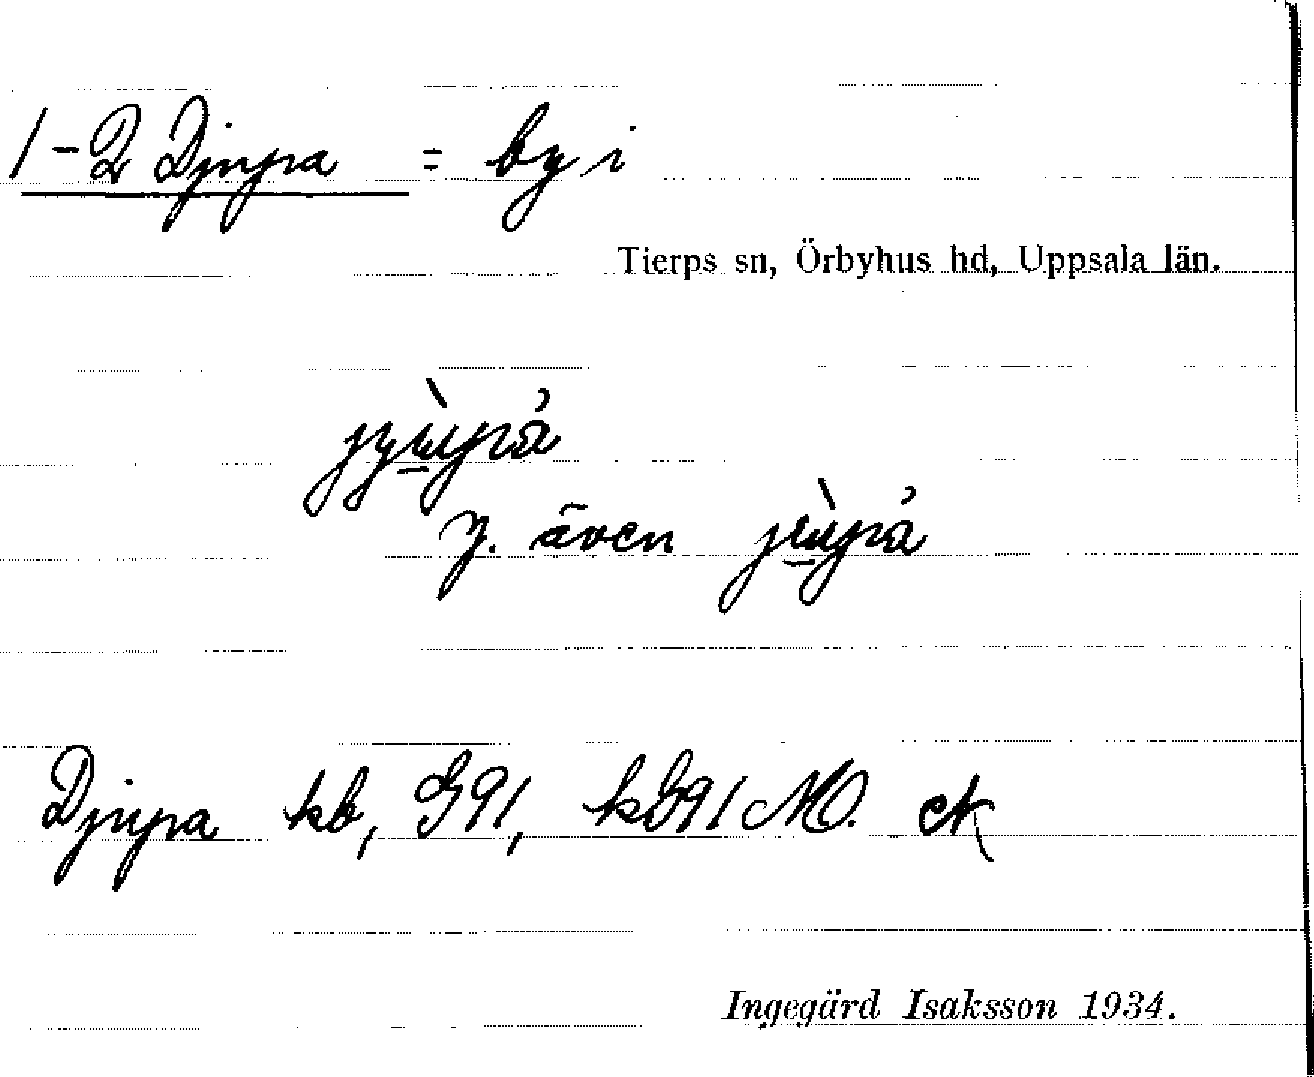 1-2 Djupa = by i
Tierps sn, Örbyhus hd, Uppsala län.
y. även
Djupa kb, G91, kb91 MO. ek
Ingegärd Isaksson 1934.